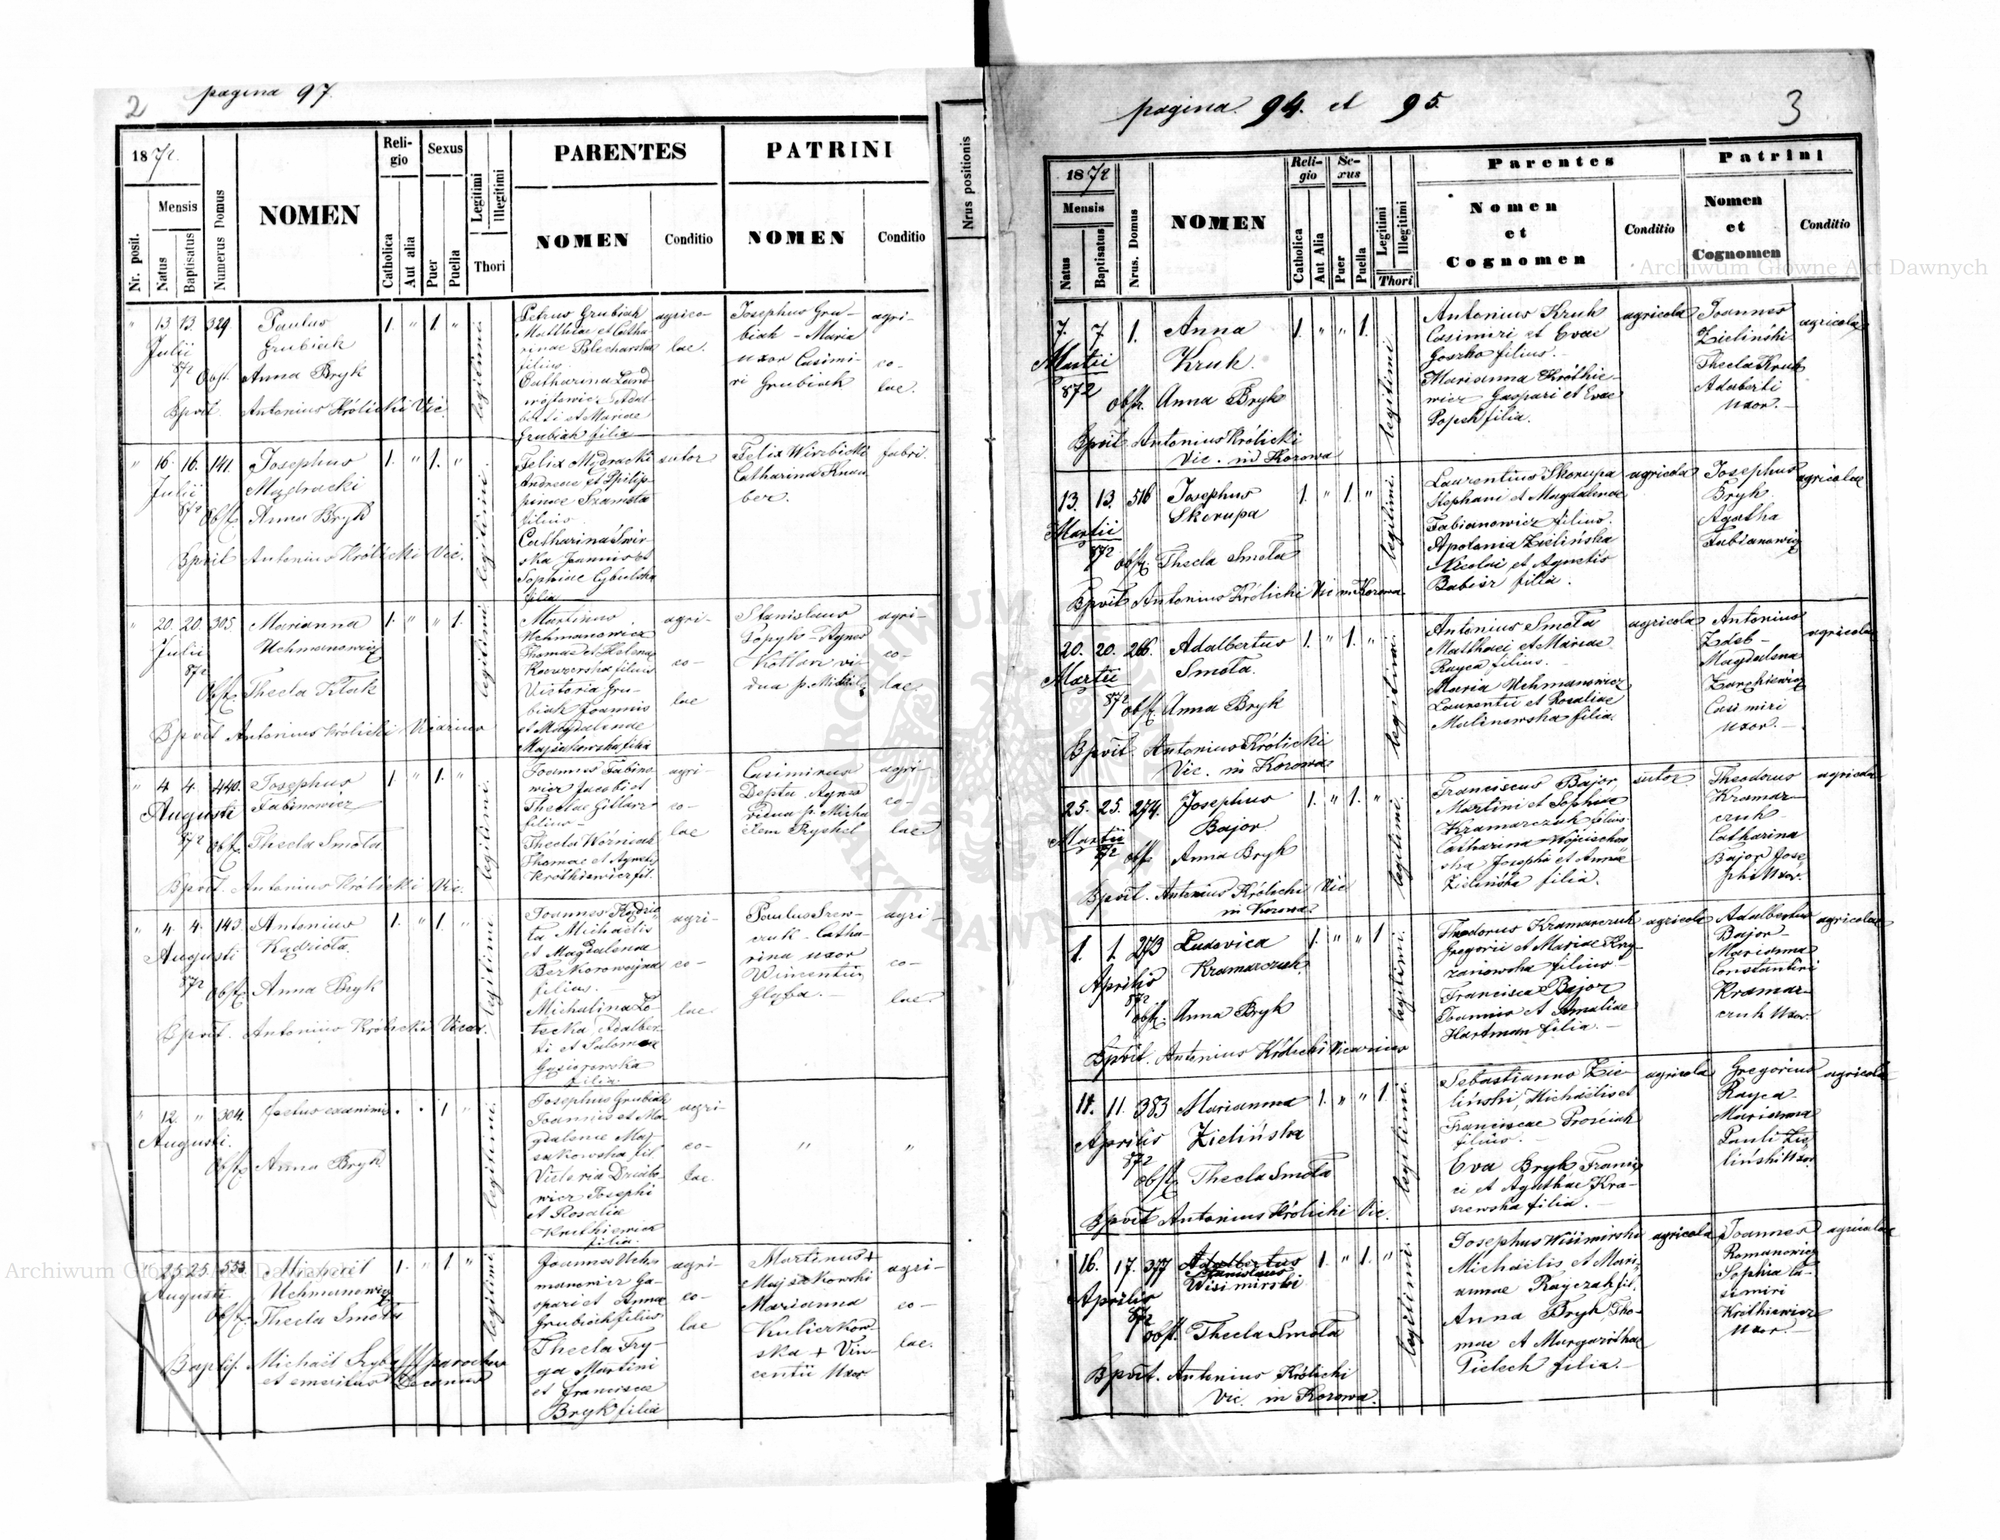 2 pagina 97.
1872.
Mensis
Nr. posit.
Natus
Baptisatus
Numerus Domus
NOMEN
Religio
Catholica
Aut alia
Sexus
Puer
Puella
Legitimi
Illegitimi
Thori
PARENTES
NOMEN
Conditio
PATRINI
NOMEN
Conditio
Nrus positionis
" 13 13. 329 Paulus 1. " 1. "
Julii Grubiak
872 Obst. Anna Bryk
Bpvit. Antonius Królicki Vic
legitimi
Petrus Grubiak
Matthiae et Catha
rinae Blecharska
filius
Catharina Land
wójtowicz Adal
berti et Mariae
Grubiak filia
agrico
lae.
Josephus Gru-
biak - Maria
uxor Casimi-
ri Grubiak
agri-
co-
lae.
" 16. 16. 141. Josephus 1. " 1. "
Julii Mądracki
872 Obst. Anna Bryk
Bpvit Antonius Królicki Vic.
legitimi.
Felix Mądracki
Andreae et Philip
pinae Szamota
filius.
Catharina
ska Joannis et
Sophiae Cybulska
filia
sutor
Felix Wirzbicki
Catharina Knau
ber.
fabri.
" 20. 20. 305. Marianna 1. " " 1.
Julii Uchmanowicz
872
Obst. Thecla Kłak
Bpvit Antonius Królicki Vicarius
legitimi
Martinus
Uchmanowicz
Thomae et Helena
filius
Victoria Gru-
biak Joannis
et Magdalenae
Majsakowska filia
agri-
co-
lae
Stanislaus
Popyk - Agnes
Kotlan vi-
dua p.
agri-
co-
lae.
" 4. 4. 440. Josephus 1. " 1. "
Augusti Fabinowicz
872 Obst. Thecla Smoła
Bpvit. Antonius Królicki Vic.
legitimi.
Joannes Fabino
wicz Jacobi et
Theclae Gitlarz
filius -
Thecla Wórniak
Thomae et Agnetis
Krothiewicz fil.
agri-
co-
lae
Casimirus
Deptu Agnes
vidua p. Micha
elem Ryshel
agri-
co-
lae
" 4. 4. 143. Antonius 1. " 1. "
Augusti Kądziota
872 Obst. Anna Bryk
Bpvit. Antonius Królicki Vicar.
legitimi.
Joannes Kądzio
ta Michaelis
et Magdalena
filius. -
Michalina Lo-
tecka, Adalber
ti et Salomea
Gąsiorowska
filia
agri-
co-
lae
Paulus Szew-
czuk - Catha-
rina uxor
Vincentii
Głyba. -
agri-
co-
lae
" 12. " 304. foetus exanimis . . 1 "
Augusti.
Obst. Anna Bryk
legitimi.
Josephus Grubiak
Joannis et Ma
gdalenae Maj
sakowska fil
Victoria Dziád-
wicz Josephi
et Rosalia
filia.
agri-
co-
lae.
" "
" 25. 25. 533. Michael 1. " 1 "
Augusti Uchmanowicz
Obst. Thecla Smoła
Baptis. Michaël parochus
et emeritus Decanus
legitimi
Joannes Uch-
manowicz Ga-
spari et Anna
Grubiak filius
Thecla Fry-
ga Martini
et Francisca
Bryk filia
agri-
co-
lae
Martinus +
Majsakowski
Marianna
Kulierkow-
ska + Vin-
centii uxor
agri-
co-
lae.
pagina 94. et 95. 3
1872
Mensis
Natus
Baptisatus
Nrus. Domus
NOMEN
Religio
Catholica
Aut Alia
Sexus
Puer
Puella
Legitimi
Illegitimi
Thori
Parentes
Nomen
et
Cognomen
Conditio
Patrini
Nomen
et
Cognomen
Conditio
7. 7 1. Anna 1. " " 1.
Martii Kruk.
872 Obst. Anna Bryk
Bpvit Antonius Królicki
Vic. in Kozowa
legitimi.
Antonius Kruk
Casimiri et Evae
Goszko filius. -
Marianna Krothie-
wicz Gaspari et Evae
Popek filia.
agricola
Joannes
Zieliński
Thecla Kruk
Adalberti
uxor. -
agricolae
13. 13. 516 Josephus 1. " 1. "
Martii Skorupa
872 Obst. Thecla Smoła
Bpvit Antonius Królicki Vic in Kozowa
legitimi.
Laurentius Skorupa
Stephani et Magdalenae
Fabianowicz filius.
Apolonia Zielinska
Nicolai et Agnetis
Babiár filia.
agricola
Josephus
Bryk
Agatha
Fabianowicz
agricolae
20. 20. 266. Adalbertus 1. " 1. "
Martii Smoła.
872 Obst. Anna Bryk
Bpvit. Antonius Królicki
Vic. in Kozowa
legitimi.
Antonius Smoła
Matthaei et Mariae
Rayca filius. -
Maria Uchmanowicz
Laurentii et Rosaliae
Malinowska filia.
agricola
Antonius
Zdeb -
Magdalena
Casimiri
uxor. -
agricolae
25. 25. 274. Josephus 1. " 1. "
Martii Bajor
872 Obst. Anna Bryk
Bpvit. Antonius Królicki Vic
in Kozowa
legitimi.
Franciscus Bajor,
Martini et Sophiae
Kramarczuk filius.
Catharina Wojciechow
ska Josephi et Annae
Zielińska filia.
sutor.
Theodorus
Kramar-
czuk -
Catharina
Bajor Jose
phi uxor.
agricola
1. 1. 273 Ludovica 1. " " 1
Aprilis Kramarczuk
872 Obst. Anna Bryk
Bpvit. Antonius Królicki Vicarius
legitimi.
Theodorus Kramarczuk
Gregorii et Mariae Kry-
zanowska filius. -
Francisca Bajor
Joannis et Amaliae
Hartman filia. -
agricola
Adalbertus
Bajor -
Marianna
Constantini
Kramar-
czuk uxor.
agricolae
11. 11. 383 Marianna 1. " " 1.
Aprilis Zielińska
872 Obst. Thecla Smoła
Bpvit Antonius Królicki Vic.
legitimi.
Sebastianus Zie-
liński, Michaëlis et
Franciscae Prościak
filius.
Eva Bryk Franci
ci et Agathae Kra-
szewska filia. -
agricola
Gregorius
Rayca
Marianna
Pauli Zie-
liński uxor
agricola
16. 17. 377 Adalbertus 1. " 1. "
Stanislaus
Aprilis Wisimirski
872 Obst. Thecla Smoła
Bpvit. Antonius Królicki
Vic. in Kozowa.
legitimi.
Josephus Wisimirski
Michaelis et Mari-
annae Rayczak fil.
Anna Bryk Tho-
mae et Margarithae
Pielech filia. -
agricola
Joannes
Romanowicz
Sophia Ca-
simiri
Krothiewicz
uxor. -
agricolae
Archiwum Główne Akt Dawnych
Archiwum Główne Akt Dawnych
ARCHIWUM GŁÓWNE AKT DAWNYCH